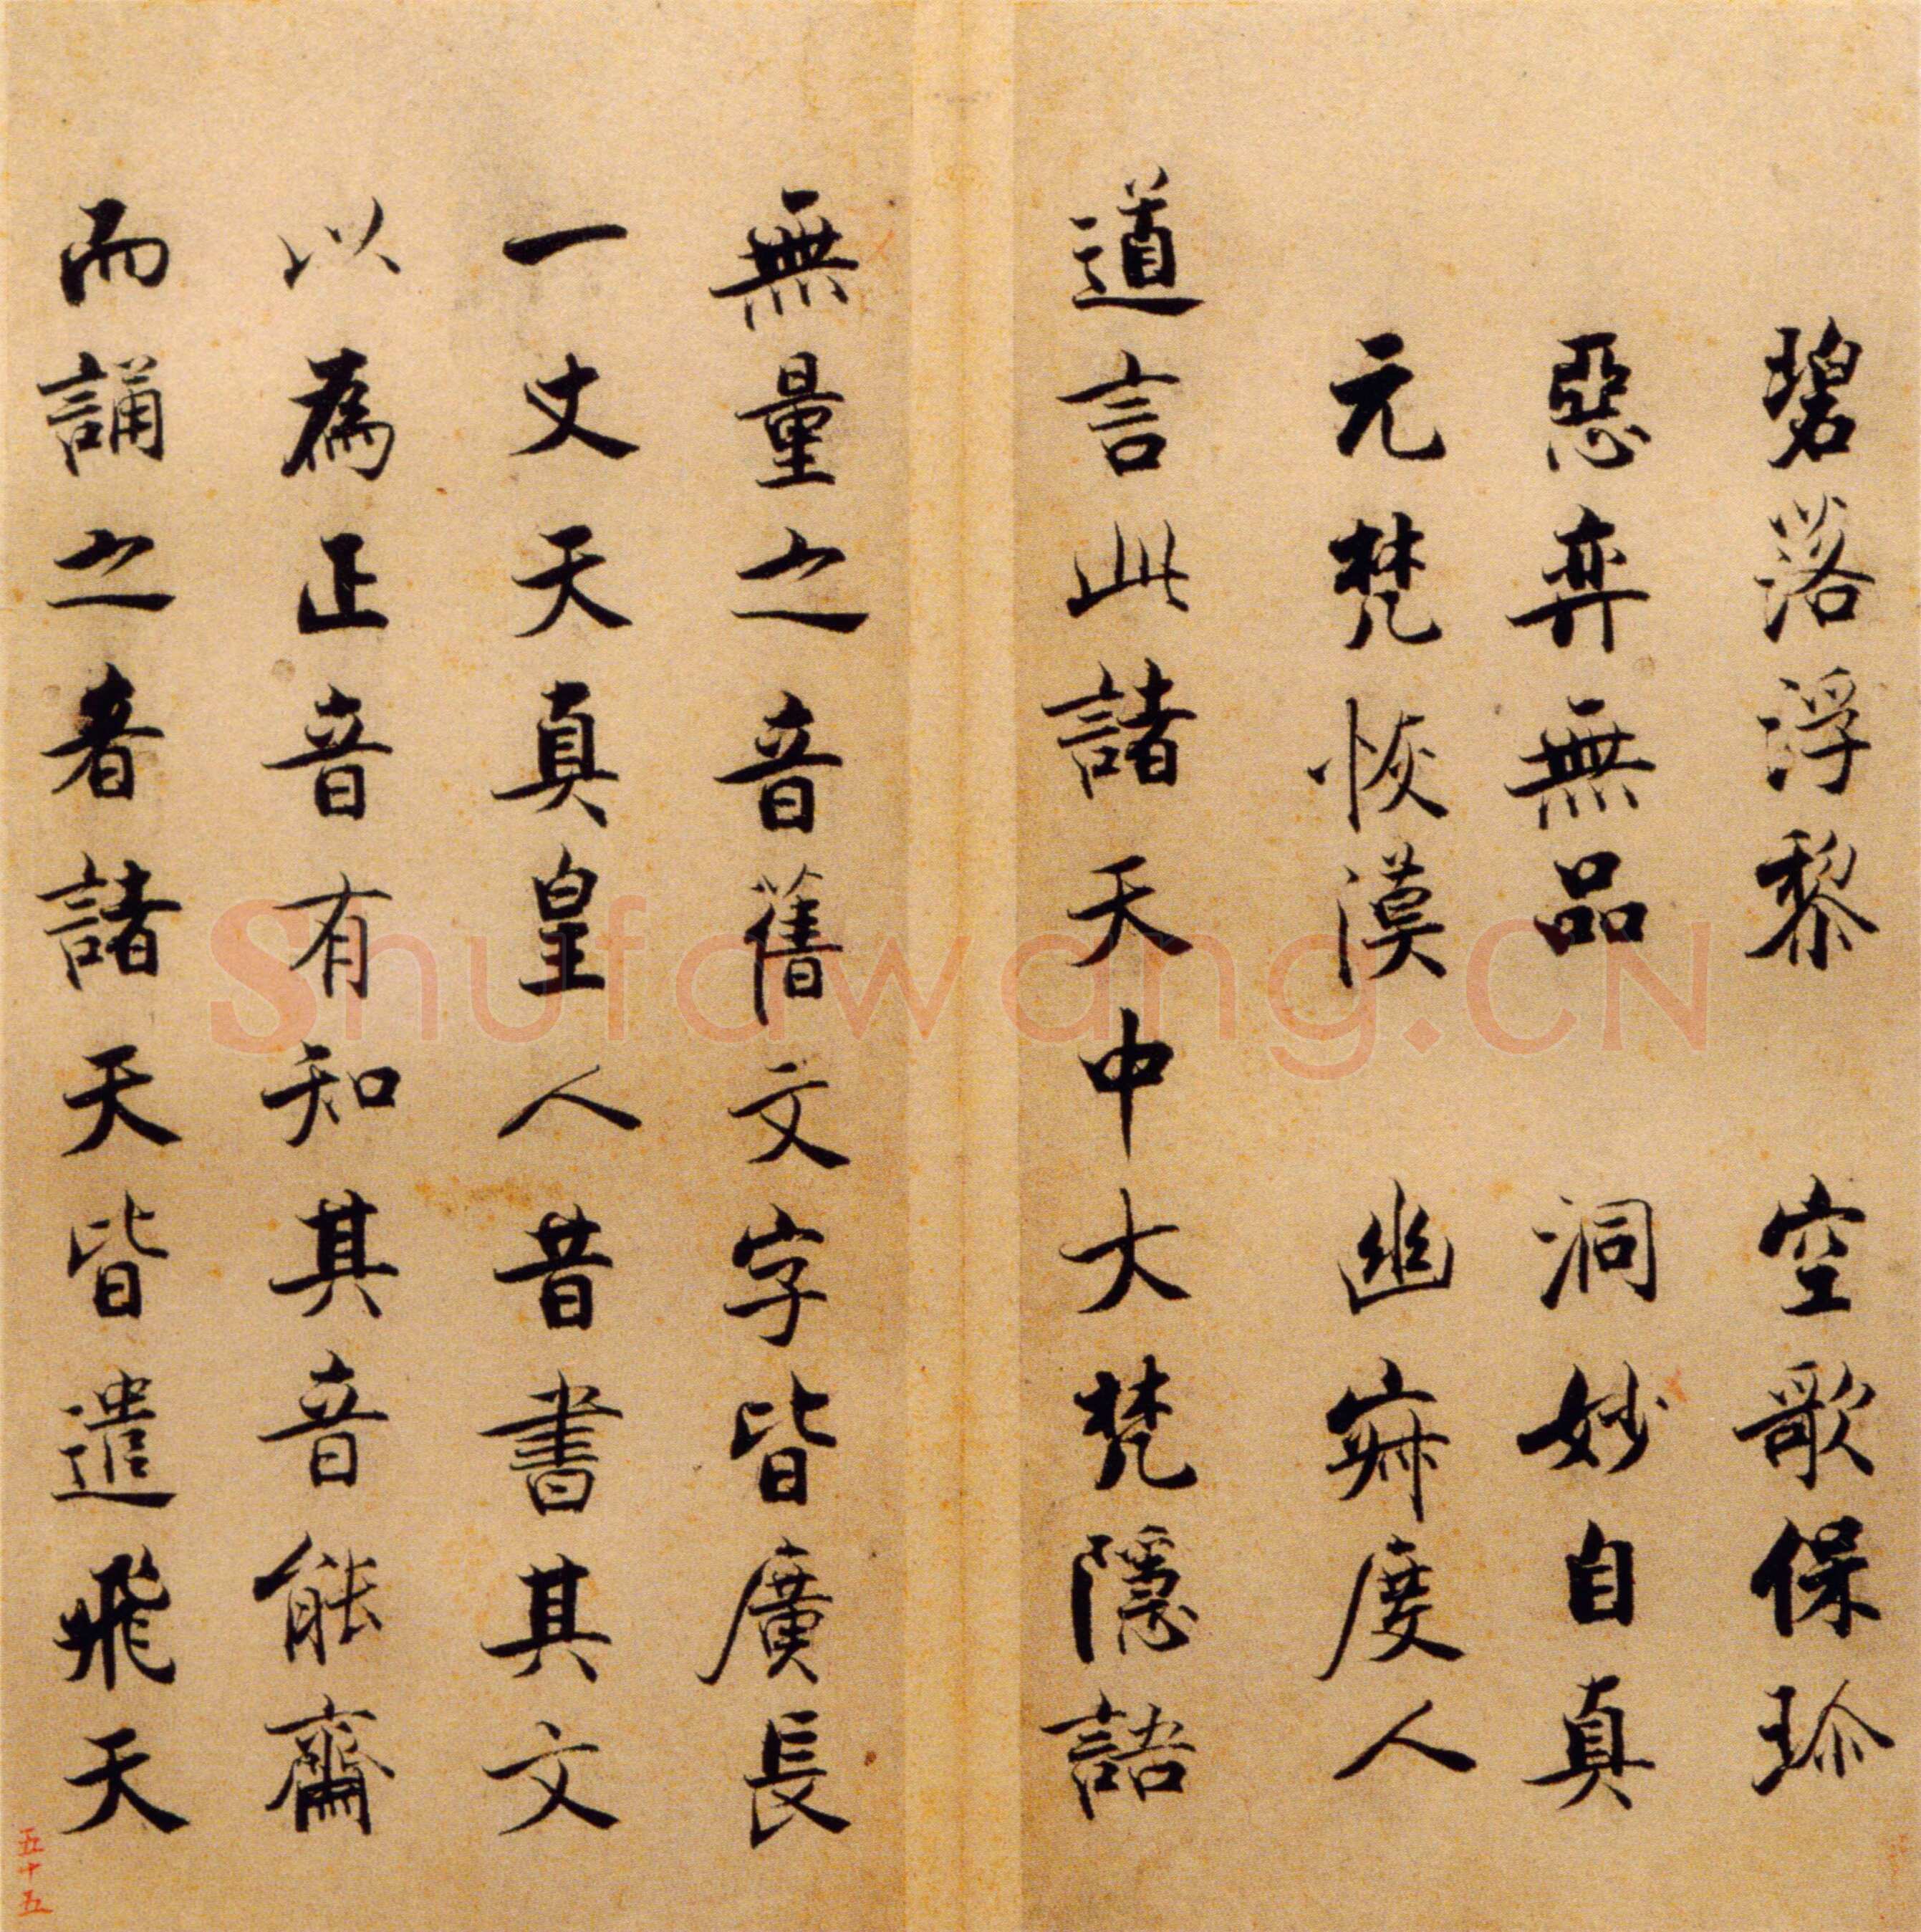 碧落浮黎 空歌保珍
惡弈無品 洞妙自真
元梵恢漠 幽寂度人
道言此諸天中大梵隱語
無量之音舊文字皆廣長
一丈天真皇人昔書其文
以為正音有知其音能齋
而誦之者諸天皆遣飛天
五十五
Shufawang.CN